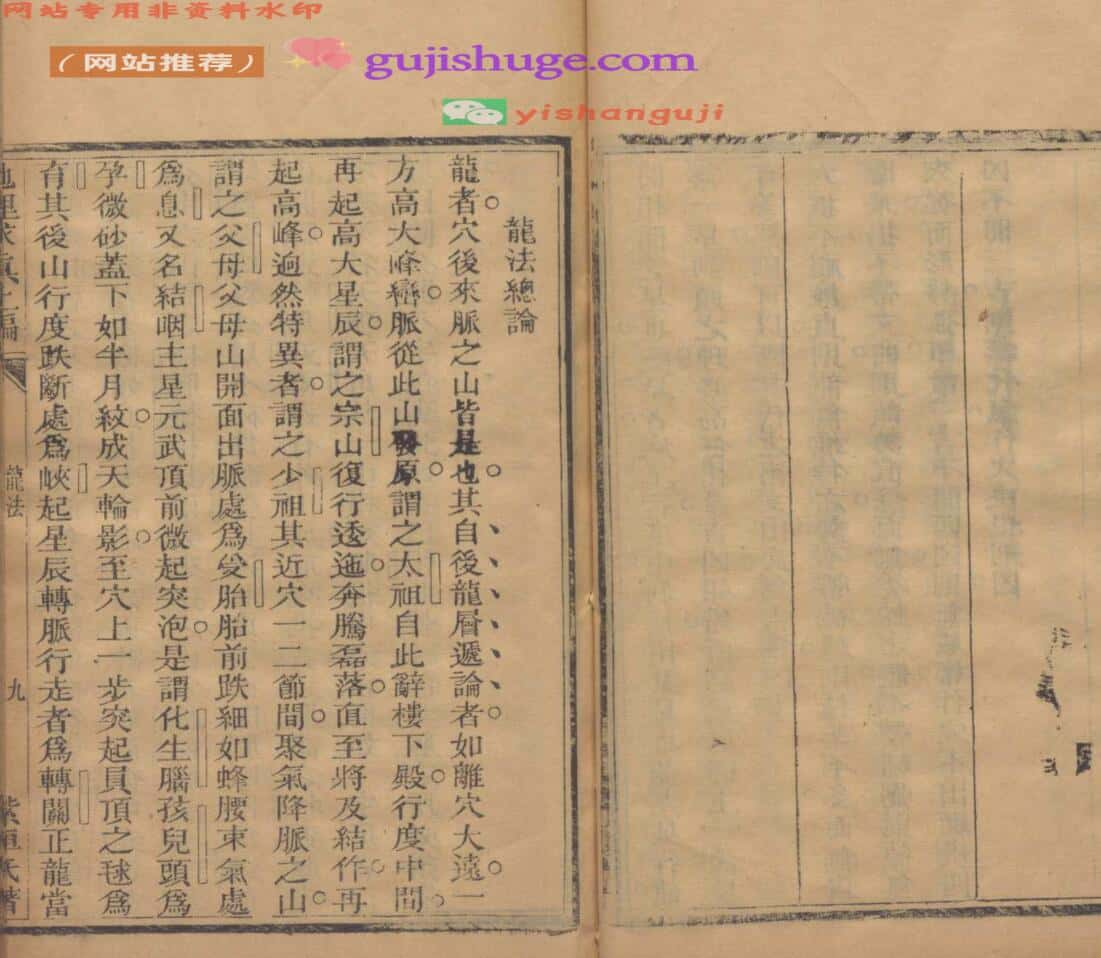 网站专用非资料水印
（网站推荐）
gujishuge.com
yishanguji
龍法總論
龍者穴後來脈之山皆是也其自後龍層遞論者如離穴大遠一
方高大峰巒脈從此山發原謂之太祖自此辭樓下殿行度中間
再起高大星辰謂之宗山復行逶迤奔騰磊落直至將及結作再
起高峰逈然特異者謂之少祖其近穴一二節間聚氣降脈之山
謂之父母父母山開面出脈處爲受胎胎前跌細如蜂腰束氣處
爲息又名結咽主星元武頂前微起突泡是謂化生腦孩兒頭爲
孕微砂蓋下如半月紋成天輪影至穴上一步突起員頂之毬爲
育其後山行度跌斷處爲峽起星辰轉脈行走者爲轉關正龍當
龍法
九